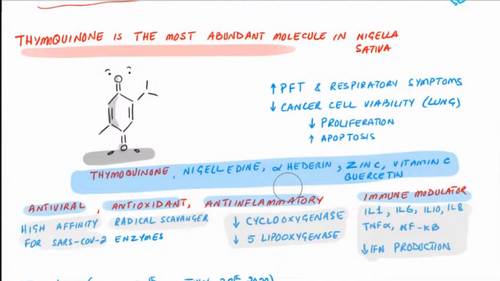 THYMOQUINONE IS THE MOST ABUNDANT MOLECULE IN NIGELLA
SATIVA
O
O
↑ PFT & RESPIRATORY SYMPTOMS
↓ CANCER CELL VIABILITY (LUNG)
↓ PROLIFERATION
↑ APOPTOSIS
THYMOQUINONE, NIGELLEDINE, α HEDERIN, ZINC, VITAMIN C
QUERCETIN
ANTIVIRAL, ANTIOXIDANT, ANTIINFLAMMATORY
HIGH AFFINITY
FOR SARS-COV-2
RADICAL SCAVANGER
ENZYMES
↓ CYCLOOXYGENASE
↓ 5 LIPOOXYGENASE
IMMUNE MODULATOR
IL1, IL6, IL10, IL8
TNFα, NF-KB
↓IFN PRODUCTION